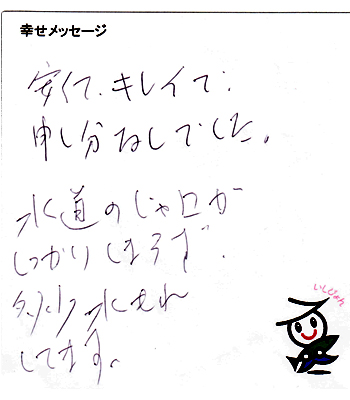 幸せメッセージ
安くて、キレイで、
申し分なしでした。
水道のじゃ口が
しっかりしまらず、
多少水もれ
してます。
いしぴょん